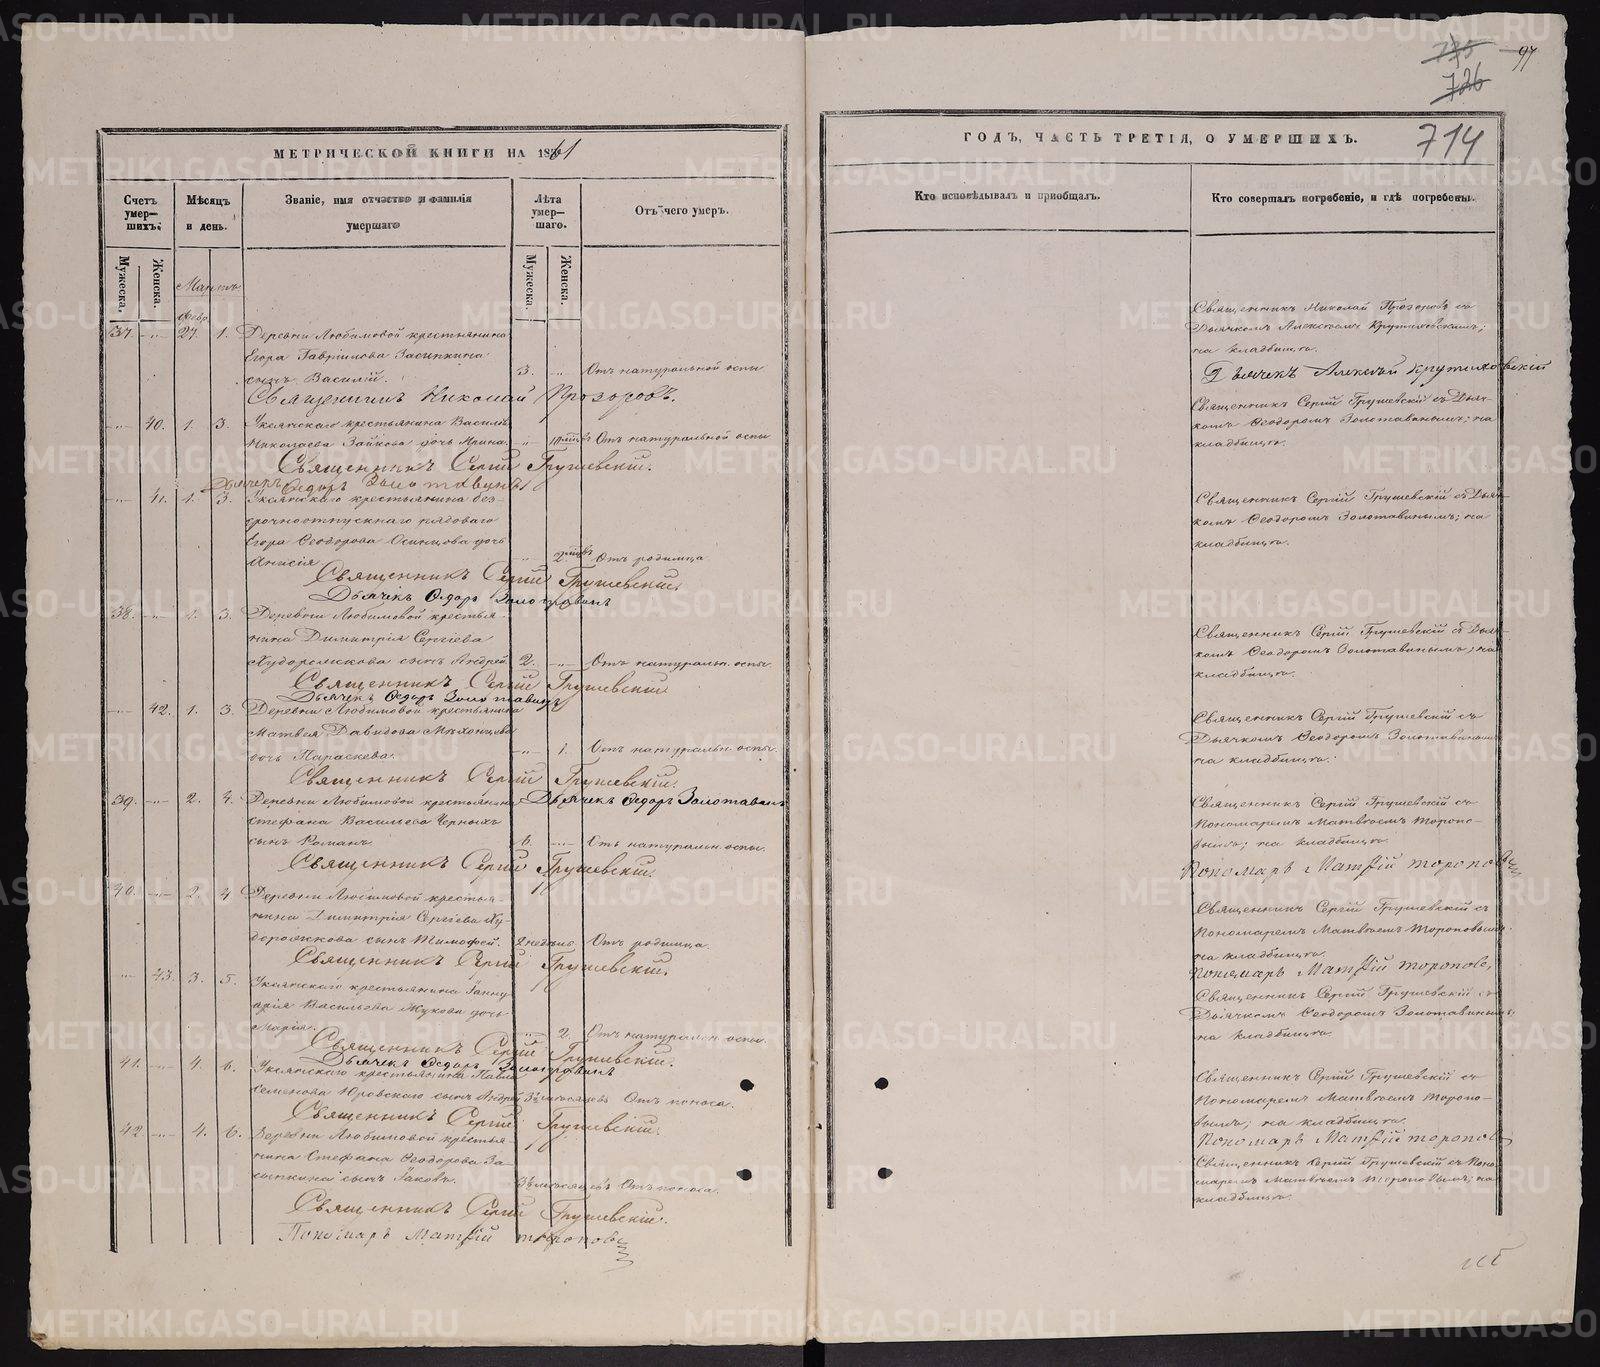 97
726
714
МЕТРИЧЕСКОЙ КНИГИ НА 1861
Счетъ умер-шихъ.
Мѣсяцъ и день.
Званіе, имя отчество и фамилія умершаго
Лѣта умер-шаго.
Отъ чего умеръ.
Мужеска.
Женска.
Мужеска.
Женска.
Мартъ.
Февр.
37. 27. 1. Деревни Любимовой крестьянина
Егора Гавріилова Засыпкина
сынъ Василій. 3. Отъ натуральной оспы
Священникъ Николай Прозоровъ.
40. 1. 3. крестьянина Василія
Николаева Зайкова дочь Ирина. Отъ натуральной оспы
Священникъ Сергій Грушевскій.
Дьячекъ Ѳедоръ Золотавинъ
41. 1. 3. крестьянина без-
срочноотпускнаго рядоваго
Егора Ѳеодорова Осинцова дочь
Анисія 2 Отъ родимца
Священникъ Сергій Грушевскій.
Дьячекъ Ѳедоръ Золотавинъ
38. 1. 3. Деревни Любимовой крестья-
нина Димитрія Сергіева
сынъ Андрей. 2. Отъ натуральн. оспы
Священникъ Сергій Грушевскій
Дьячекъ Ѳедоръ Золотавинъ
42. 1. 3. Деревни Любимовой крестьянина
Матвея Давидова
дочь Параскева. 1. Отъ натуральн. оспы.
Священникъ Сергій Грушевскій.
39. 2. 4. Деревни Любимовой крестьянина Дьячекъ Ѳедоръ Золотавинъ
Стефана Васильева Черныхъ
сынъ Романъ. 6. Отъ натуральн. оспы.
Священникъ Сергій Грушевскій.
40. 2. 4 Деревни Любимовой крестья-
нина Димитрія Сергіева
сынъ Тимофей. Отъ родимца.
Священникъ Сергій Грушевскій.
43. 3. 5. крестьянина Іанну-
арія Васильева Жукова дочь
Марія. 2. Отъ натуральн. оспы.
Священникъ Сергій Грушевскій.
Дьячекъ Ѳедоръ Золотавинъ
41. 4. 6. крестьянина Павла
Семенова Юровскаго сынъ Андрей Отъ поноса.
Священникъ Сергій Грушевскій.
42 4. 6. Деревни Любимовой крестья-
нина Стефана Ѳеодорова За-
сыпкина сынъ Іаковъ. Отъ поноса.
Священникъ Сергій Грушевскій.
Пономарь Матфій Тороповъ
ГОДЪ, ЧАСТЬ ТРЕТІЯ, О УМЕРШИХЪ.
Кто исповѣдывалъ и пріобщалъ.
Кто совершалъ погребеніе, и гдѣ погребены.
Священникъ Николай Прозоровъ съ
Дьячкомъ Алексѣемъ Крутиховскимъ;
на кладбищѣ.
Дьячекъ Алексѣй Крутиховскій
Священникъ Сергій Грушевскій съ Дьяч-
комъ Ѳеодоромъ Золотавинымъ; на
кладбищѣ.
Священникъ Сергій Грушевскій съ Дьяч-
комъ Ѳеодоромъ Золотавинымъ; на
кладбищѣ.
Священникъ Сергій Грушевскій съ Дьяч-
комъ Ѳеодоромъ Золотавинымъ; на
кладбищѣ.
Священникъ Сергій Грушевскій съ
Дьячкомъ Ѳеодоромъ Золотавинымъ
на кладбищѣ.
Священникъ Сергій Грушевскій съ
Пономаремъ Матвѣемъ Торопо-
вымъ; на кладбищѣ.
Пономарь Матфій Тороповъ
Священникъ Сергій Грушевскій съ
Пономаремъ Матвѣемъ Тороповымъ
на кладбищѣ.
Пономарь Матфій Тороповъ
Священникъ Сергій Грушевскій съ
Дьячкомъ Ѳеодоромъ Золотавинымъ
на кладбищѣ
Священникъ Сергій Грушевскій съ
Пономаремъ Матвѣемъ Торопо-
вымъ; на кладбищѣ.
Пономарь Матфій Тороповъ
Священникъ Сергій Грушевскій съ Поно-
маремъ Матвѣемъ Тороповымъ; на
кладбищѣ.
METRIKI.GASO-URAL.RU